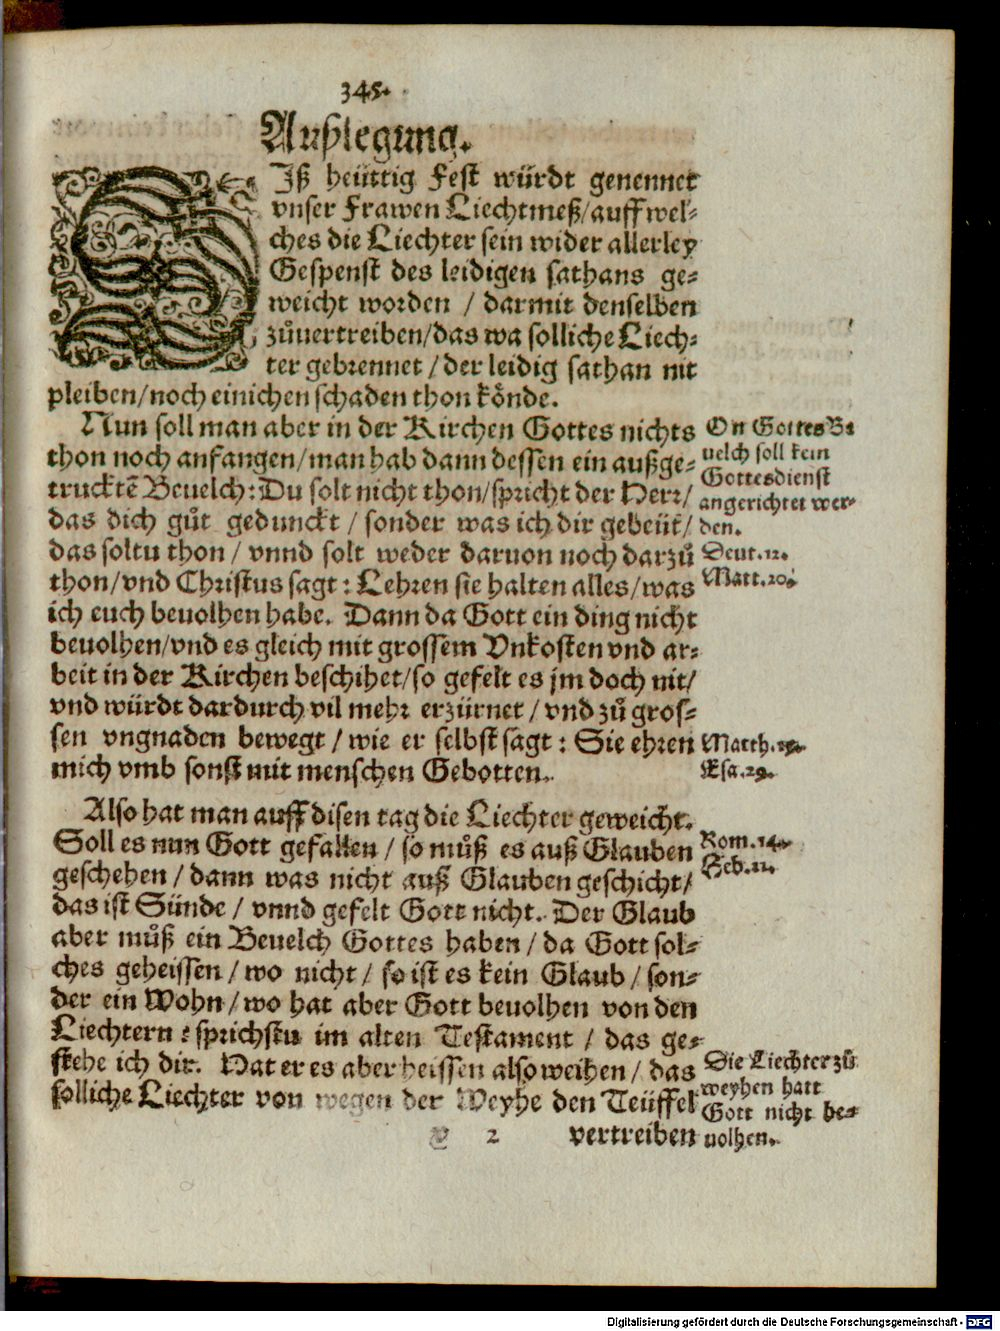 345.
Außlegung.
DIß heüttig Fest würdt genennet
vnser Frawen Liechtmeß/auff wel-
ches die Liechter sein wider allerley
Gespenst des leidigen sathans ge-
weicht worden / darmit denselben
zůuertreiben/das wa solliche Liech-
ter gebrennet / der leidig sathan nit
pleiben/noch einichen schaden thon könde.
Nun soll man aber in der Kirchen Gottes nichts
thon noch anfangen/man hab dann dessen ein außge-
trucktē Beuelch: Du solt nicht thon/spricht der Herr/
das dich gůt gedunckt / sonder was ich dir gebeüt/
das soltu thon / vnnd solt weder daruon noch darzů
thon/vnd Christus sagt: Lehren sie halten alles/was
ich euch beuolhen habe. Dann da Gott ein ding nicht
beuolhen/vnd es gleich mit grossem Vnkosten vnd ar-
beit in der Kirchen beschihet/so gefelt es jm doch nit/
vnd würdt dardurch vil mehr erzürnet / vnd zů gros-
sen vngnaden bewegt / wie er selbst sagt: Sie ehren
mich vmb sonst mit menschen Gebotten.
On Gottes Be
uelch soll kein
Gottesdienst
angerichtet wer-
den.
Deut.12.
Matt.20.
Matth.15.
Esa.29.
Also hat man auff disen tag die Liechter geweicht.
Soll es nun Gott gefallen / so můß es auß Glauben
geschehen / dann was nicht auß Glauben geschicht/
das ist Sünde / vnnd gefelt Gott nicht. Der Glaub
aber můß ein Beuelch Gottes haben / da Gott sol-
ches geheissen / wo nicht / so ist es kein Glaub / son-
der ein Wohn / wo hat aber Gott beuolhen von den
Liechtern: sprichstu im alten Testament / das ge-
stehe ich dir. Hat er es aber heissen also weihen / das
solliche Liechter von wegen der Weyhe den Teüffel
Rom.14.
Heb.11.
Die Liechter zů
weyhen hatt
Gott nicht be-
uolhen.
2 vertreiben
Digitalisierung gefördert durch die Deutsche Forschungsgemeinschaft - DFG